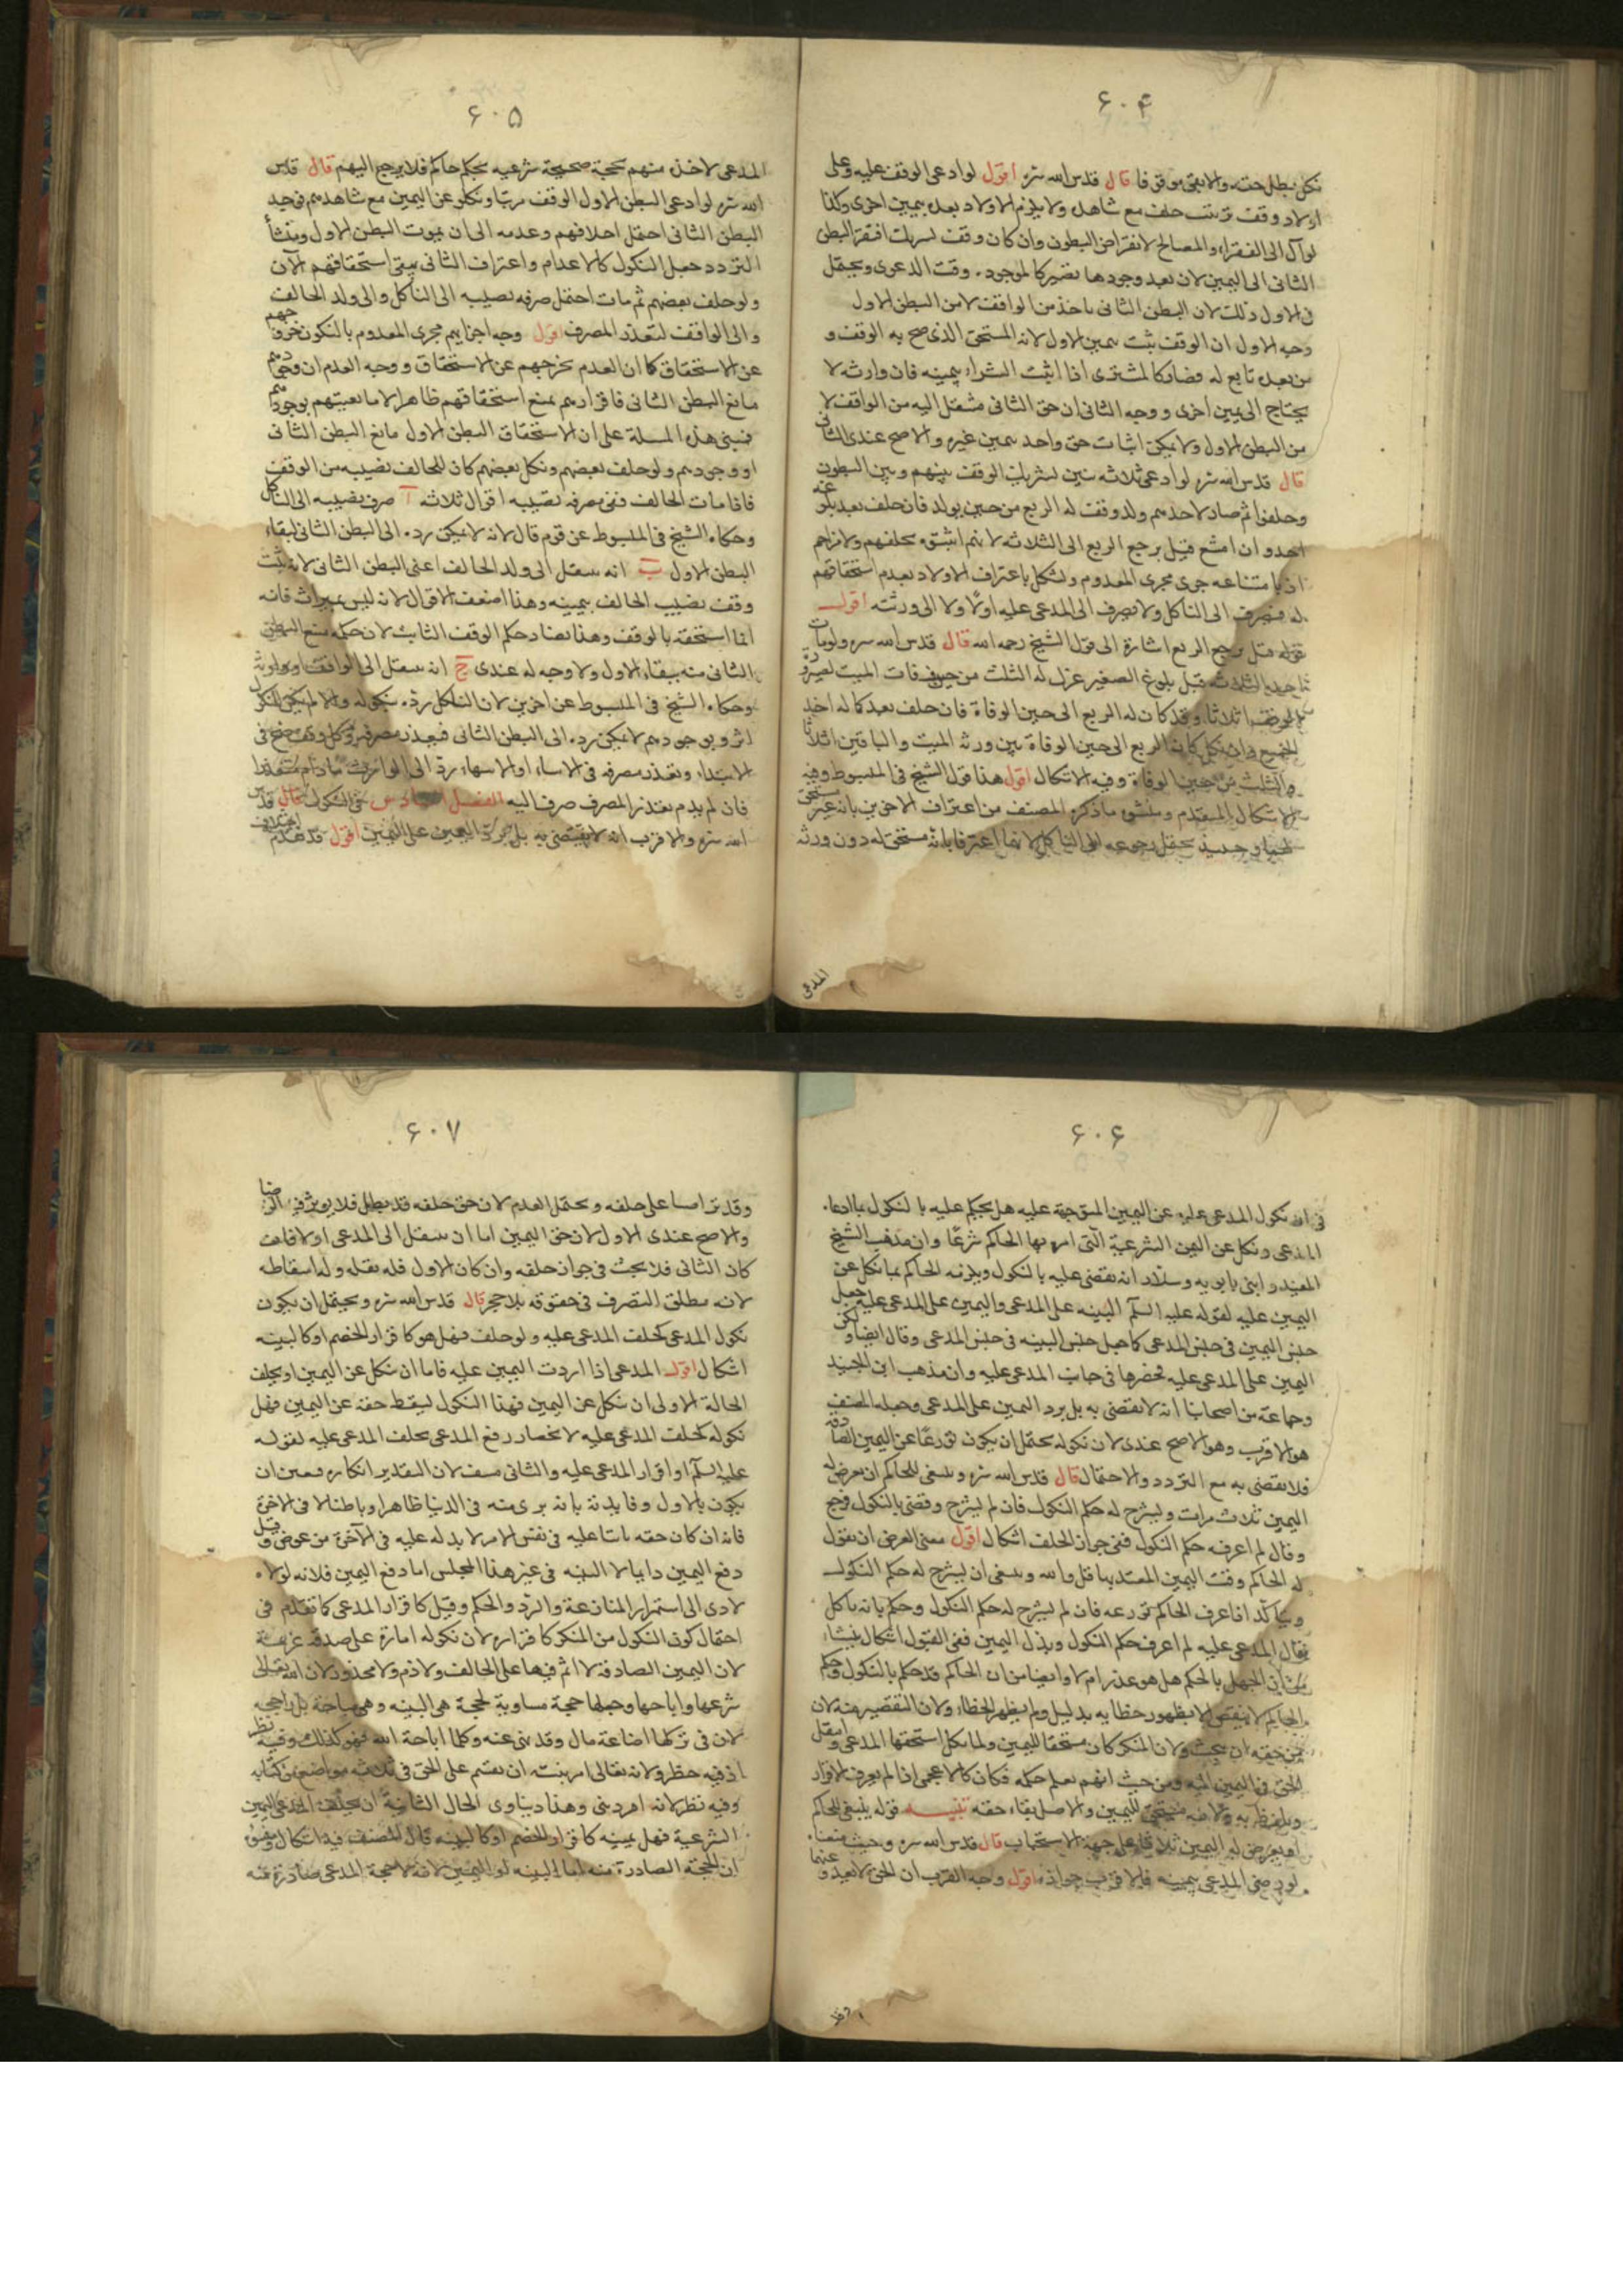 ۶۰۴
نكل بطل حقه والا بقى موقوفا قال قدس الله سره اقول لو ادعى الوقف عليه وعلى
اولاد وقف ترتيب حلف مع شاهده ولا يلزم الاولاد بعده يمين اخرى وكذا
لو آل الى الفقراء والمصالح لانقراض البطون وان كان وقف تشريك افتقر البطن
الثانى الى اليمين لان بعد وجودها تصير كالموجود وقت الدعوى ويحتمل
فى الاول ذلك لان البطن الثانى ياخذ من الواقف لا من البطن الاول
وجه الاول ان الوقف يثبت بيمين الاول لانه المستحق الذى صح به الوقف و
من بعده تابع له فصار كالمشترى اذا اثبت الشراء بيمينه فان وارثه لا
يحتاج الى يمين اخرى ووجه الثانى ان حق الثانى منتقل اليه من الواقف لا
من البطن الاول ولا يمكن اثبات حق واحد بيمين غيره والاصح عندى الثانى
قال قدس الله سره لو ادعى ثلاثه بنين تشريك الوقف بينهم وبين البطون
وحلفوا ثم صار لاحدهم ولد وقف له الربع من حين يولد فان حلف بعد بلوغه
اخذ وان امتنع قيل يرجع الربع الى الثلاثه لانهم اثبتوه بحلفهم ولا مزاحم
اذ بامتناعه جرى مجرى المعدوم ويشكل باعتراف الاولاد بعدم استحقاقهم
له فيصرف الى الناكل ولا يصرف الى المدعى عليه اولا ولا الى ورثته اقول
قوله قيل يرجع الربع اشارة الى قول الشيخ رحمه الله قال قدس الله سره ولو مات
احد الثلاثه قبل بلوغ الصغير عزل له الثلث من حين وفات الميت
وقد كان له الربع الى حين الوفاة فان حلف بعد كماله اخذ
الجميع وان نكل كان الربع الى حين الوفاة بين ورثه الميت والباقين اثلاثا
والثلث من حين الوفاة وفيه الاشكال اقول هذا قول الشيخ فى المبسوط وفيه
الاشكال المتقدم ومنشوه ما ذكره المصنف من اعتراف الاخوين بانه غير مستحق
يحتمل رجوعه الى الناكل لانهما اعترفا بانه مستحق له دون ورثه
المدعى
۶۰۵
المدعى لاخذه منهم بحجة صحيحة شرعيه بحكم حاكم فلا يرجع اليهم قال قدس
الله سره لو ادعى البطن الاول الوقف مرتبا ونكلوا عن اليمين مع شاهدهم فجيد
البطن الثانى احتمل احلافهم وعدمه الى ان يموت البطن الاول ومنشأ
التردد جعل النكول كالاعدام واعتراف الثانى بنفى استحقاقهم الآن
ولو حلف بعضهم ثم مات احتمل صرف نصيبه الى الناكل والى ولد الحالف
والى الواقف لتعذر المصرف اقول وجه اجرايهم مجرى المعدوم بالنكول خروجهم
عن الاستحقاق كما ان العدم يخرجهم عن الاستحقاق ووجه العدم ان وجودهم
مانع البطن الثانى فاقرارهم يمنع استحقاقهم ظاهرا لا مانعيتهم بوجودهم
فتبنى هذه المسلة على ان الاستحقاق البطن الاول مانع البطن الثانى
او وجودهم ولو حلف بعضهم ونكل بعضهم كان للحالف نصيبه من الوقف
فاذا مات الحالف ففى مصرف نصيبه اقوال ثلاثه آ صرف نصيبه الى الناكل
وحكاه الشيخ فى المبسوط عن قوم قال لانه لا يمكن رده الى البطن الثانى لبقاء
البطن الاول ب انه ينتقل الى ولد الحالف اعنى البطن الثانى لانه يثبت
وقف نصيب الحالف بيمينه وهذا اضعف الاقوال لانه ليس بميراث فانه
انما استحقه بالوقف وهذا يضاد حكم الوقف الثابت لان حكمه منع البطن
الثانى منه ببقاء الاول ولا وجه له عندى ج انه ينتقل الى الواقف او وارثه
وحكاه الشيخ فى المبسوط عن اخرين لان الناكل رده بنكوله والا لم يكن للنكول
اثر وبوجودهم لا يمكن رده الى البطن الثانى فتعذر مصرفه وكل وقف صح فى
الابتداء وتعذر مصرفه فى الاثناء او الانتهاء رد الى الوارث ما دام متعذرا
فان لم يدم تعذر المصرف صرف اليه الفصل السادس فى النكول قال قدس
الله سره والاقرب انه لا يقضى به بل يرد اليمين على المدعى اقول قد تقدم
۶۰۶
فى ان نكول المدعى عليه عن اليمين المتوجهة عليه هل يحكم عليه بالنكول بما ادعاه
المدعى ونكل عن اليمين الشرعية التى امره بها الحاكم شرعا وان مذهب الشيخ
المفيد وابنى بابويه وسلار انه يقضى عليه بالنكول ويلزمه الحاكم بما نكل عن
اليمين عليه لقوله عليه السلم البينه على المدعى واليمين على المدعى عليه جعل
جنس اليمين فى جنس المدعى كما جعل جنس البينه فى جنس المدعى وقال ايضا
اليمين على المدعى عليه فحصرها فى جانب المدعى عليه وان مذهب ابن الجنيد
وجماعة من اصحابنا انه لا يقضى به بل يرد اليمين على المدعى وجعله المصنف
هو الاقرب وهو الاصح عندى لان نكوله يحتمل ان يكون تورعا عن اليمين الصادقه
فلا يقضى به مع التردد والاحتمال قال قدس الله سره وينبغى للحاكم ان يعرض له
اليمين ثلاث مرات ويشرح له حكم النكول فان لم يشرح وقضى بالنكول فرجع
وقال لم اعرف حكم النكول ففى جواز الحلف اشكال اقول معنى العرض ان يقول
له الحاكم وقت اليمين المعتد بها قل والله وينبغى ان يشرح له حكم النكول
ويتأكد اذا عرف الحاكم تورعه فان لم يشرح له حكم النكول وحكم بانه ناكل
فقال المدعى عليه لم اعرف حكم النكول وبذل اليمين ففى القبول اشكال ينشاء
من ان الجهل بالحكم هل هو عذر ام لا وايضا من ان الحاكم قد حكم بالنكول وحكم
الحاكم لا ينقض الا بظهور خطايه بدليل ولم يظهر الخطاء ولان التقصير منه لان
من حقه ان يبحث ولان المنكر كان مستحقا لليمين ولما نكل استحقها المدعى وانتقل
الحق فى اليمين اليه ومن حيث انهم يعلم حكمه فكان كالاعجمى اذا لم يعرف الاقرار
وتلفظ به ولانه مستحق لليمين والاصل بقاء حقه تنبيه قوله ينبغى للحاكم
ان يعرض له اليمين ثلاثا على جهة الاستحباب قال قدس الله سره وحيث منعناه
لو رضى المدعى بيمينه فالاقرب جوازه اقول وجه القرب ان الحق لا يعدوهما
وقد
۶۰۷
وقد تراضيا على حلفه ويحتمل العدم لان حق حلفه قد بطل فلا يوثر فيه الرضا
والاصح عندى الاول لان حق اليمين اما ان ينتقل الى المدعى اولا فان
كان الثانى فلا بحث فى جواز حلفه وان كان الاول فله نقله وله اسقاطه
لانه مطلق التصرف فى حقوقه بلا حجر قال قدس الله سره ويحتمل ان يكون
نكول المدعى كحلف المدعى عليه ولو حلف فهل هو كاقرار الخصم او كالبينه
اشكال اقول المدعى اذا اردت اليمين عليه فاما ان ينكل عن اليمين او يحلف
الحالة الاولى ان ينكل عن اليمين فهذا النكول يسقط حقه عن اليمين فهل
نكوله كحلف المدعى عليه لانحصار رفع المدعى بحلف المدعى عليه لقوله
عليه السلم او اقرار المدعى عليه والثانى منتف لان التقدير انكاره فتعين ان
يكون بالاول وفايدته بانه برى منه فى الدنيا ظاهرا وباطنا لا فى الاخرة
فانه ان كان حقه ثابتا عليه فى نفس الامر لا بد له عليه فى الآخرة من عوض وقيل
دفع اليمين دايما لا البينه فى غير هذا المجلس اما دفع اليمين فلانه لولاه
لادى الى استمرار المنازعة والرد والحكم وقيل كاقرار المدعى كما تقدم فى
احتمال كون النكول من المنكر كاقراره لان نكوله امارة على صدقه غريمه
لان اليمين الصادقة لا اثم فيها على الحالف ولا ذم ولا محذور لان الله تعالى
شرعها واباحها وجعلها حجة مساوية لحجة هى البينه وهى مباحة بل راجحه
لان فى تركها اضاعة مال وقد نهى عنه وكلما اباحة الله فهو كذلك وفيه نظر
اذ فيه حظر ولانه تعالى امر نبيه ان يقسم على الحق فى ثلاثه مواضع من كتابه
وفيه نظر لانه امر دينى وهذا دنياوى الحال الثانية ان يحلف المدعى اليمين
الشرعية فهل يمينه كاقرار الخصم او كالبينه قال المصنف فيه اشكال ومنشؤه
ان الحجة الصادرة منه اما البينه او اليمين لانه لا حجة المدعى صادرة منه